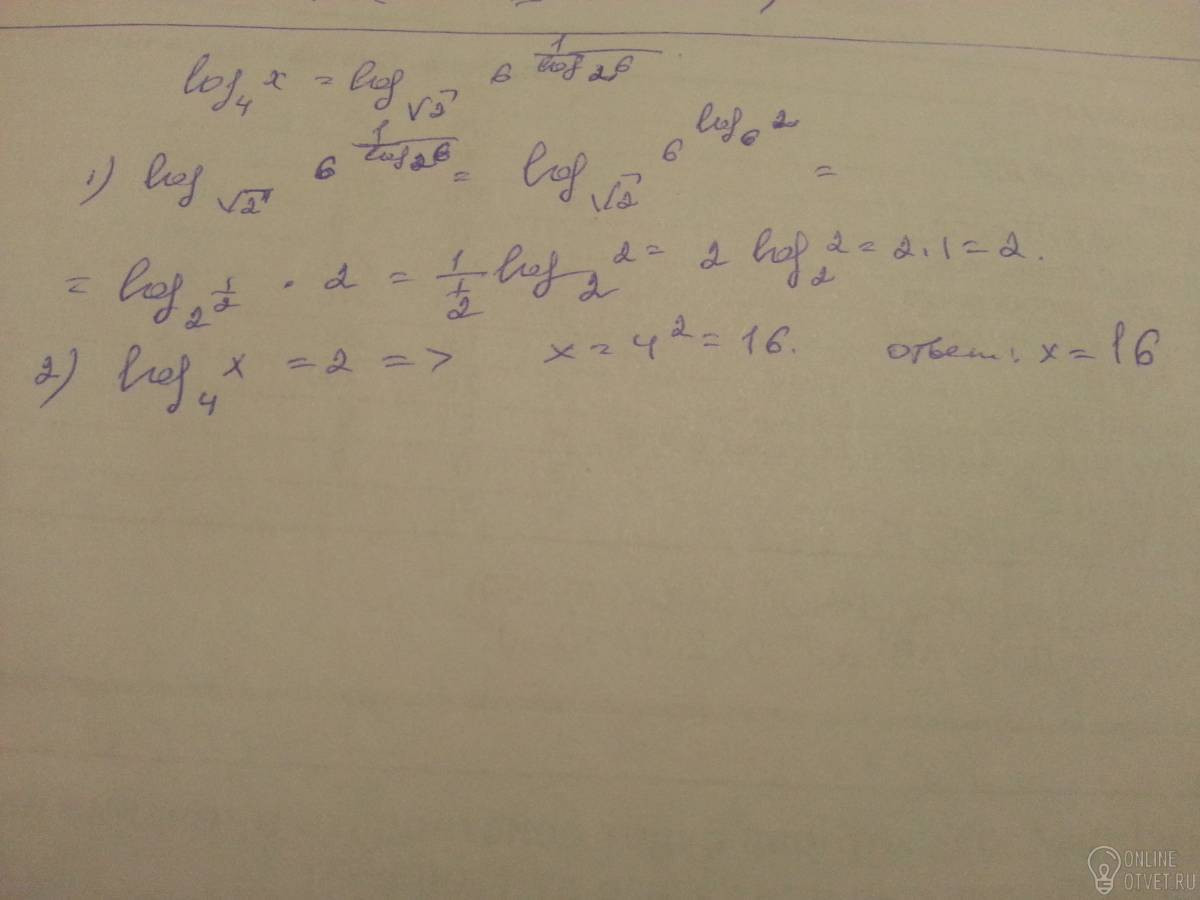 log₄ x = log_√2 6^(1/log₂6)
1) log_√2 6^(1/log₂6) = log_√2 6^(log₆2) =
= log_2^(1/2) · 2 = 1/(1/2) log₂ 2 = 2 log₂ 2 = 2 · 1 = 2.
2) log₄ x = 2 => x = 4² = 16. ответ: x = 16
ONLINE
OTVET.RU